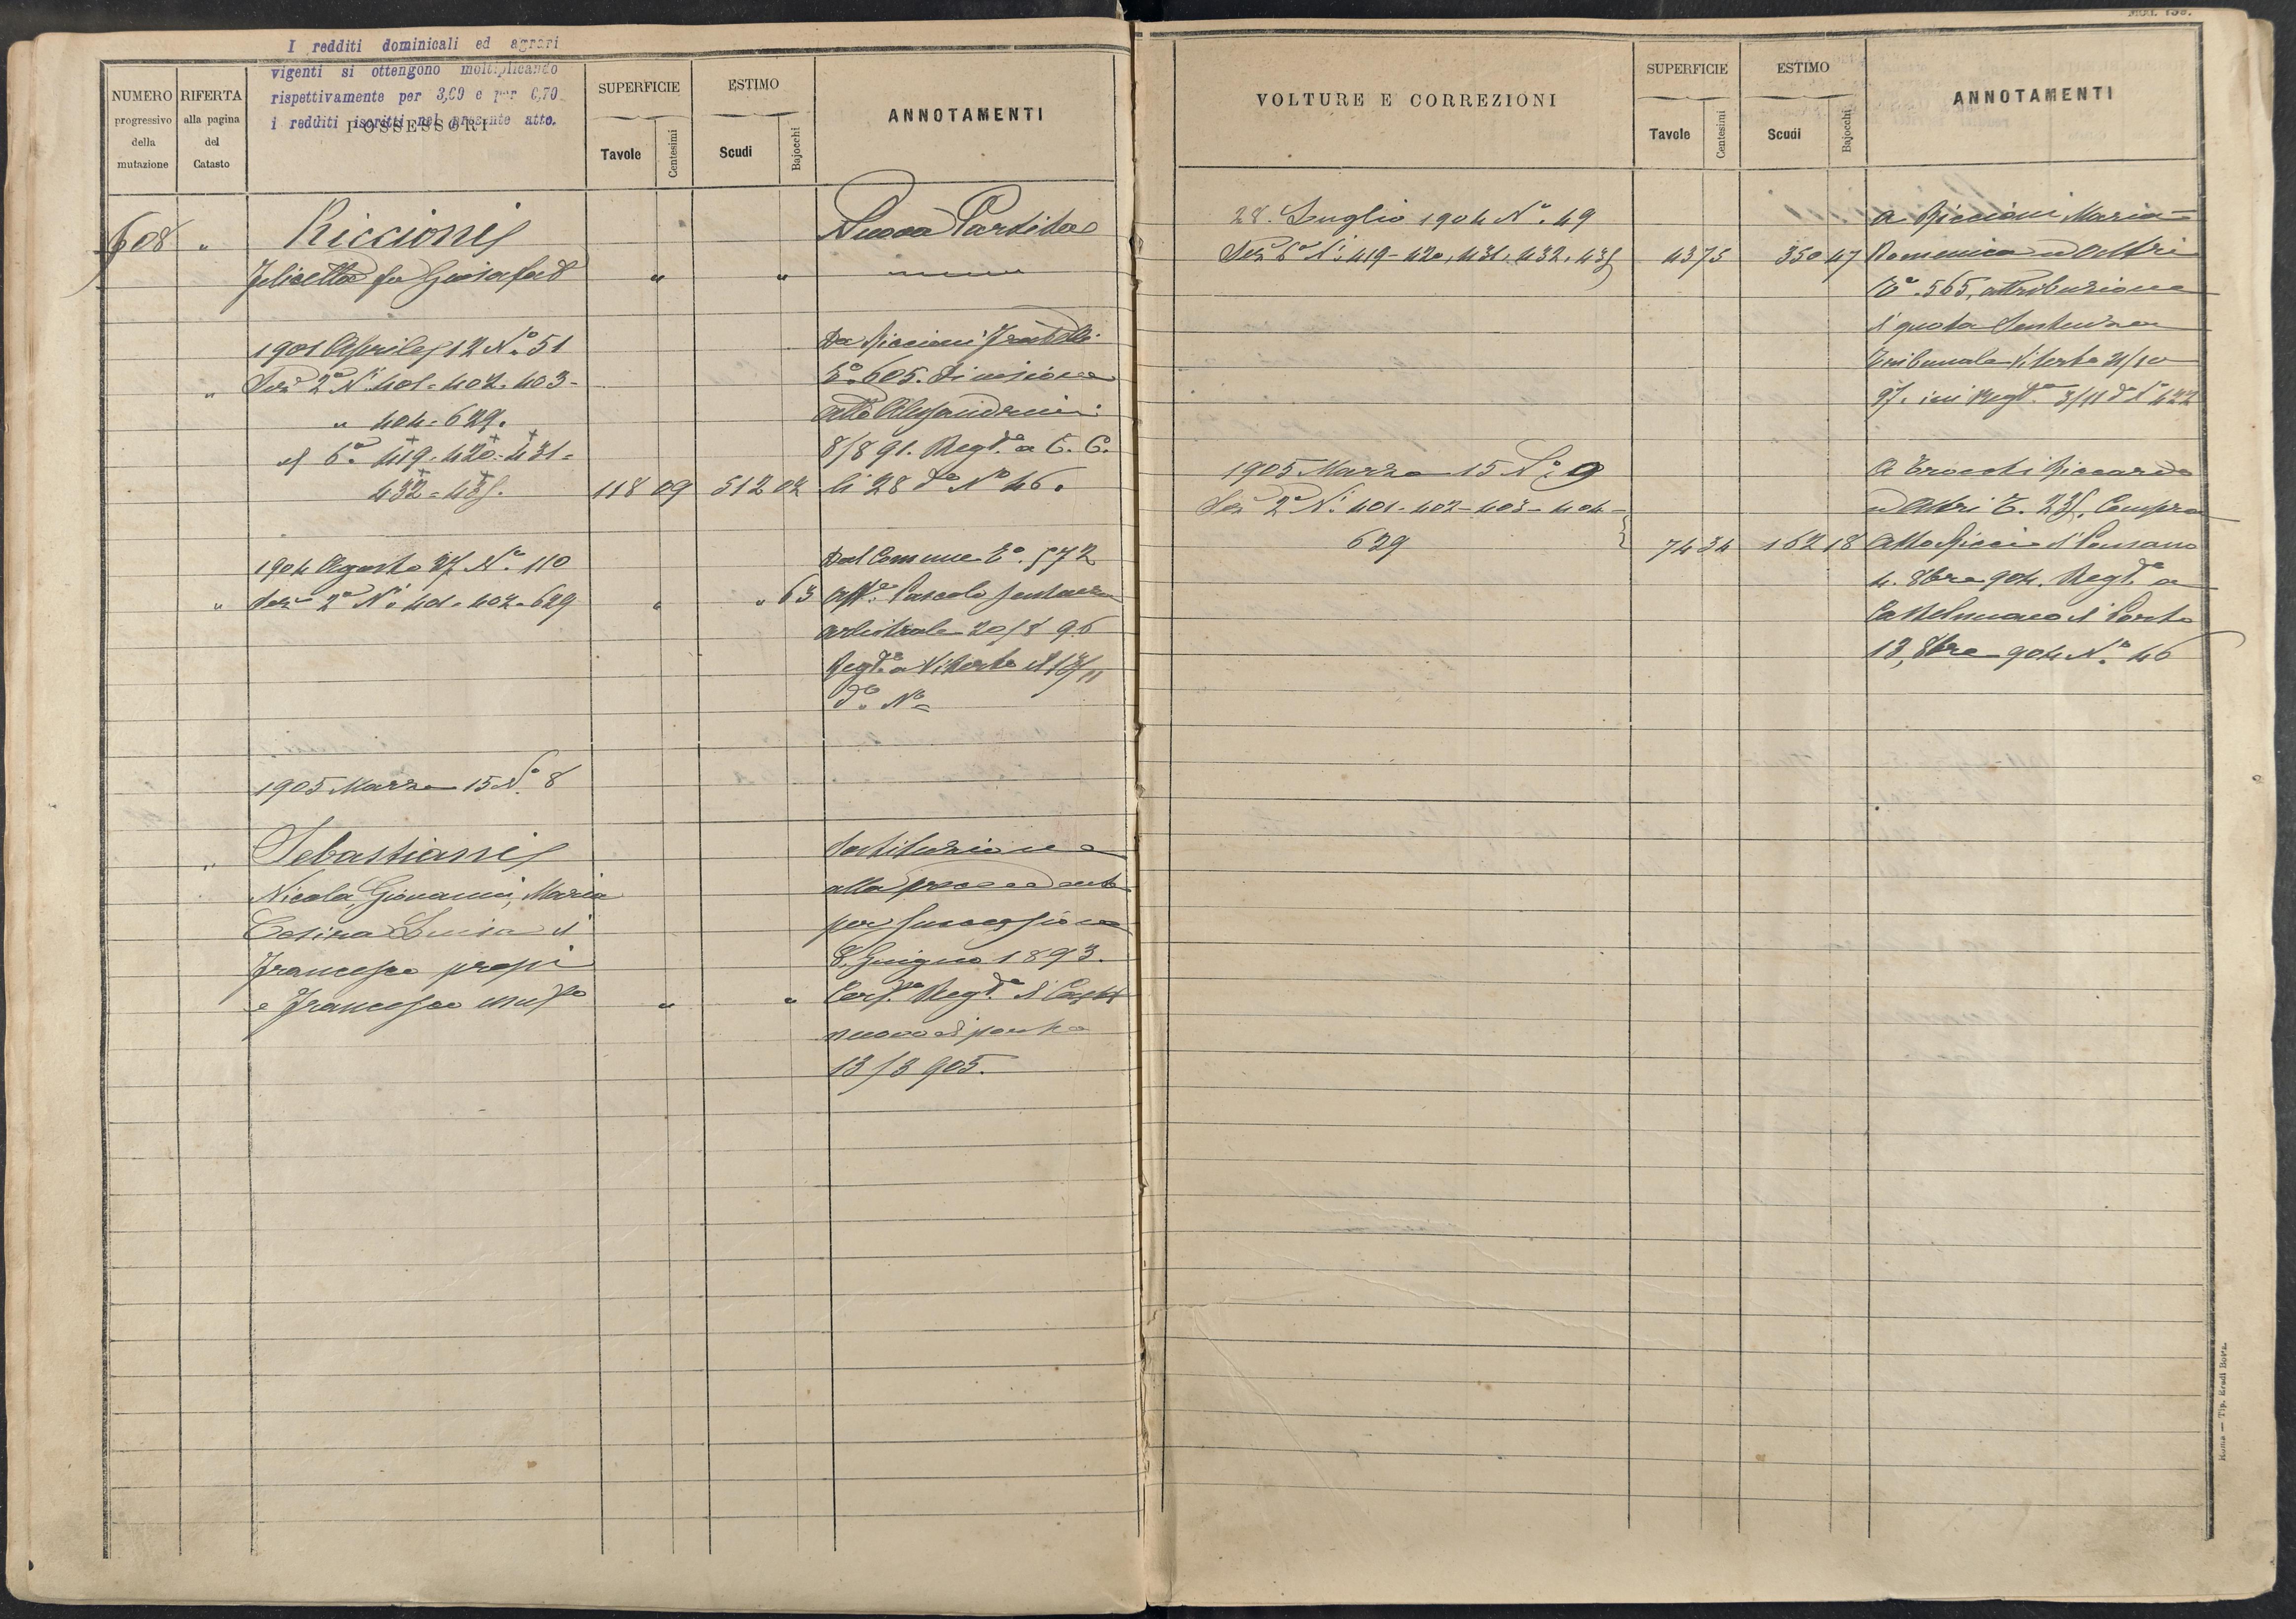 I redditi dominicali ed agrari
vigenti si ottengono moltiplicando
rispettivamente per 3,60 e per 0,70
i redditi iscritti nel presente atto.
NUMERO progressivo della mutazione
RIFERTA alla pagina del Catasto
POSSESSORI
SUPERFICIE
Tavole Centesimi
ESTIMO
Scudi Bajocchi
ANNOTAMENTI
608 " Riccioni Nuova Partita
Felicetta fu " "
1901 Aprile 12 N.º 51 Da Riccioni Fratelli
" Sez.e 2ª N.i 401-402-403- Tº 605. Divisione
" 404-629. atto Alessandrini
" 6ª 419-420-431- 8/8 91. Regt.º a C. C.
432-435. 118 09 512 02 li 28 dº Nº 46.
1904 Agosto 27 N.º 110 Dal Comune Tº. 572
" Sez.e 2ª N.i 401-402-629 " " 63 Aff.e Pascolo sentenza
arbitrale 20/8 96
Regt.º a Viterbo
dº Nº =
1905 Marzo 15 N.º 8
" Sebastiani Sostituzione
Nicola, Giovanni, Maria alla precedente
Luisa di per successione
Francesco propi 8 Giugno 1893.
e Francesco usufº " " Regt.º a Castel
nuovo di porto
13/3 905.
Mod. 138.
VOLTURE E CORREZIONI
SUPERFICIE
Tavole Centesimi
ESTIMO
Scudi Bajocchi
ANNOTAMENTI
28. Luglio 1904 N.º 49 a Riccioni Maria
Sez.e 6ª N.i 419-420, 431, 432, 435 43 75 350 47 Domenica ed Altri
Tº. 565, attribuzione
di quota Sentenza
Tribunale Viterbo 21/10
97. ivi Regt.º 3/11 dº Nº 422
1905 Marzo 15 N.º 9 A Trocchi Riccardo
Sez.e 2ª N.i 401-402-403-404- ed Altri T. 235. Compra
629 74 34 162 18 Atto Ricci
4. 8bre 904. Regt.º a
Castelnuovo di Porto
13, 8bre 904 N.º 46
Roma — Tip. Eredi Botta.